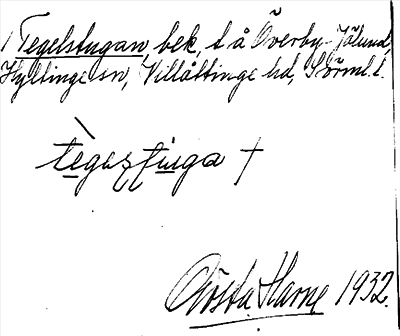 Tegelstugan, bek, t å Överby-Jälund,
Hyltinge sn, Villåttinge hd, Sörml. l.
Gösta Harne 1932.